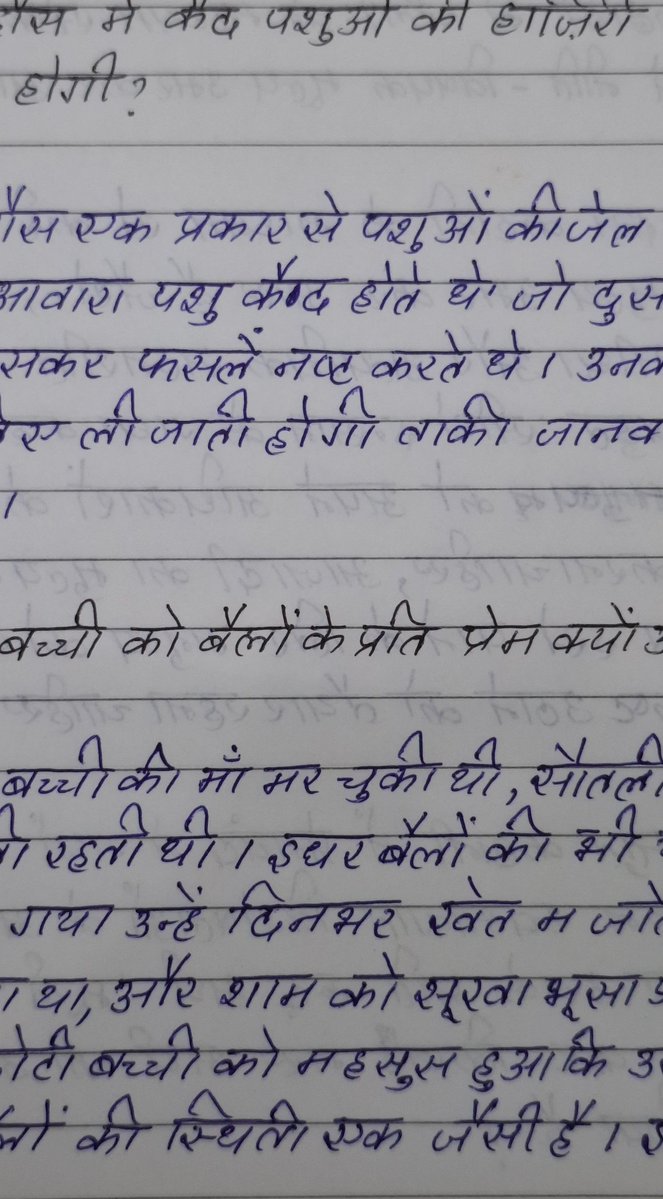 में कैद पशुओं की हाज़िरी
होगी?
एक प्रकार से पशुओं की जेल
आवारा पशु कैद होते थे जो
फसलें नष्ट करते थे।
ली जाती होगी ताकी
।
बच्ची को बैलों के प्रति प्रेम क्यों
बच्ची की माँ मर चुकी थी, सौतली
रहती थी। इधर बैलों की भी
गया उन्हें दिनभर खेत म
था, और शाम को सूखा भूसा
बच्ची को महसुस हुआ कि
की स्थिती एक जैसी है।